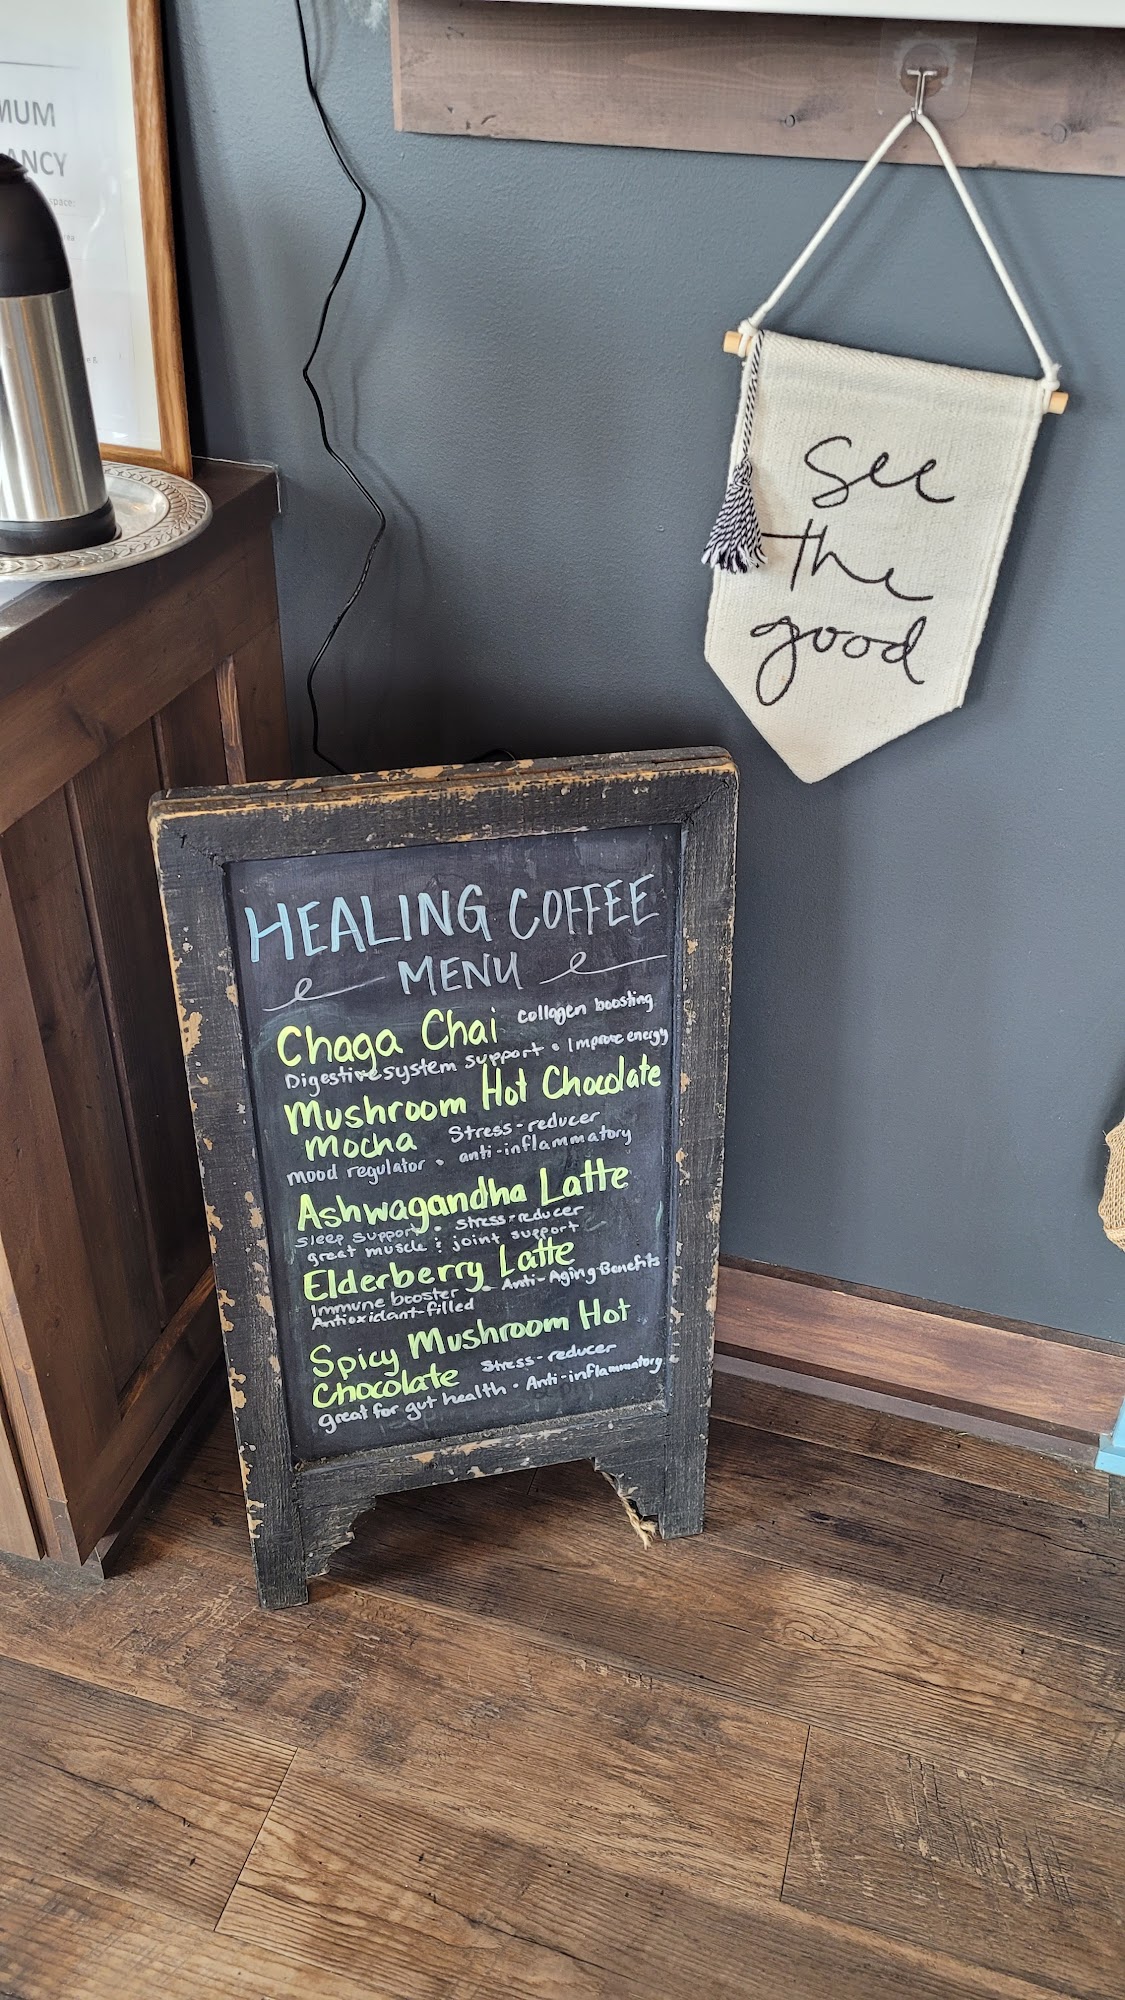 MUM
ANCY
space:
see
the
good
HEALING COFFEE
MENU
Chaga Chai collagen boosting
Digestive system support • Improve energy
Mushroom Hot Chocolate
Mocha Stress-reducer
mood regulator • anti-inflammatory
Ashwagandha Latte
Sleep support • stress-reducer
great muscle & joint support
Elderberry Latte
Immune booster - Anti-Aging Benefits
Antioxidant-filled
Spicy Mushroom Hot
Chocolate Stress-reducer
great for gut health • Anti-inflammatory